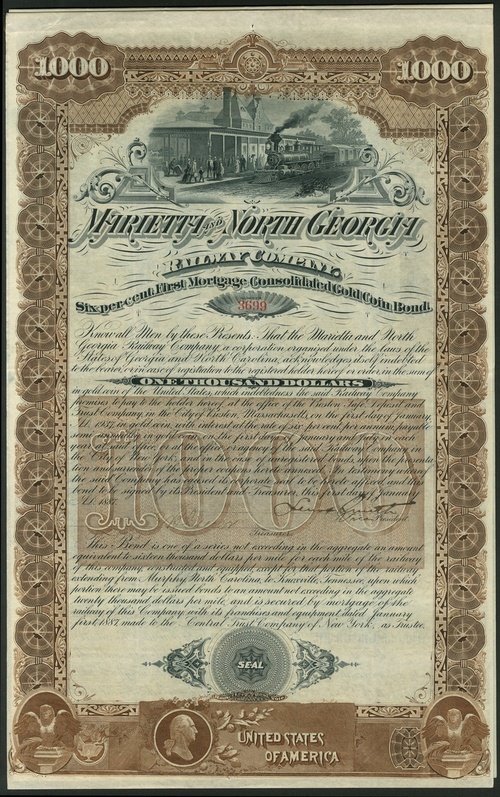 1000 1000
MARIETTA AND NORTH GEORGIA
RAILWAY COMPANY.
Six per cent. First Mortgage Consolidated Gold Coin Bond.
3699
Know all Men by these Presents. That the Marietta and North
Georgia Railway Company, a corporation organized under the laws of the
States of Georgia and North Carolina, acknowledges itself indebted
to the bearer, or in case of registration to the registered holder hereof or order, in the sum of
ONE THOUSAND DOLLARS
in gold coin of the United States, which indebtedness the said Railway Company
promises to pay to the bearer hereof at the office of the Boston Safe Deposit and
Trust Company, in the City of Boston, Massachusetts, on the first day of January,
A.D. 1937, in gold coin, with interest at the rate of six per cent. per annum, payable
semi-annually in gold coin on the first days of January and July in each
year at said office, or at the office or agency of the said Railway Company in
the City of New York, and in the case of unregistered bonds, upon the presenta-
tion and surrender of the proper coupon hereto annexed. In testimony whereof
the said Company has caused its corporate seal to be hereto affixed, and this
bond to be signed by its President and Treasurer, this first day of January
A.D. 1887.
1000
President
Treasurer.
This Bond is one of a series not exceeding in the aggregate an amount
equivalent to sixteen thousand dollars per mile for each mile of the railway
of this company, constructed and equipped, except that portion of the railway
extending from Murphy, North Carolina, to Knoxville, Tennessee, upon which
portion there may be issued bonds to an amount not exceeding in the aggregate
twenty thousand dollars per mile, and is secured by mortgage of the
railway of this Company with its franchises and equipment dated January
first 1887 made to the Central Trust Company of New York, as Trustee.
SEAL
UNITED STATES
OF AMERICA